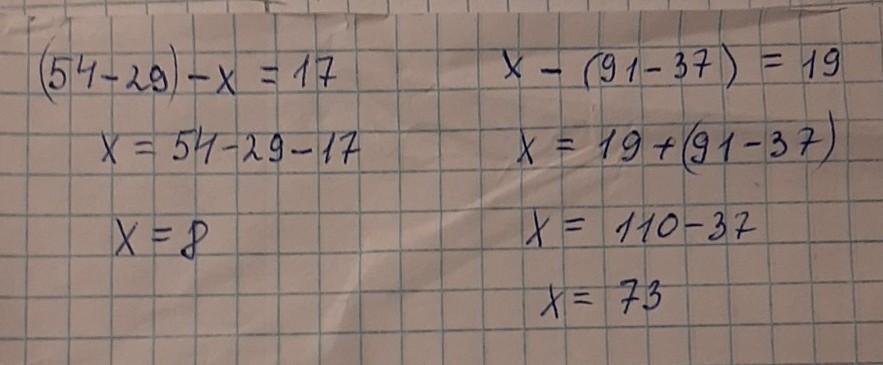 (54-29)-x = 17
x = 54-29-17
x = 8
x - (91-37) = 19
x = 19+(91-37)
x = 110-37
x = 73